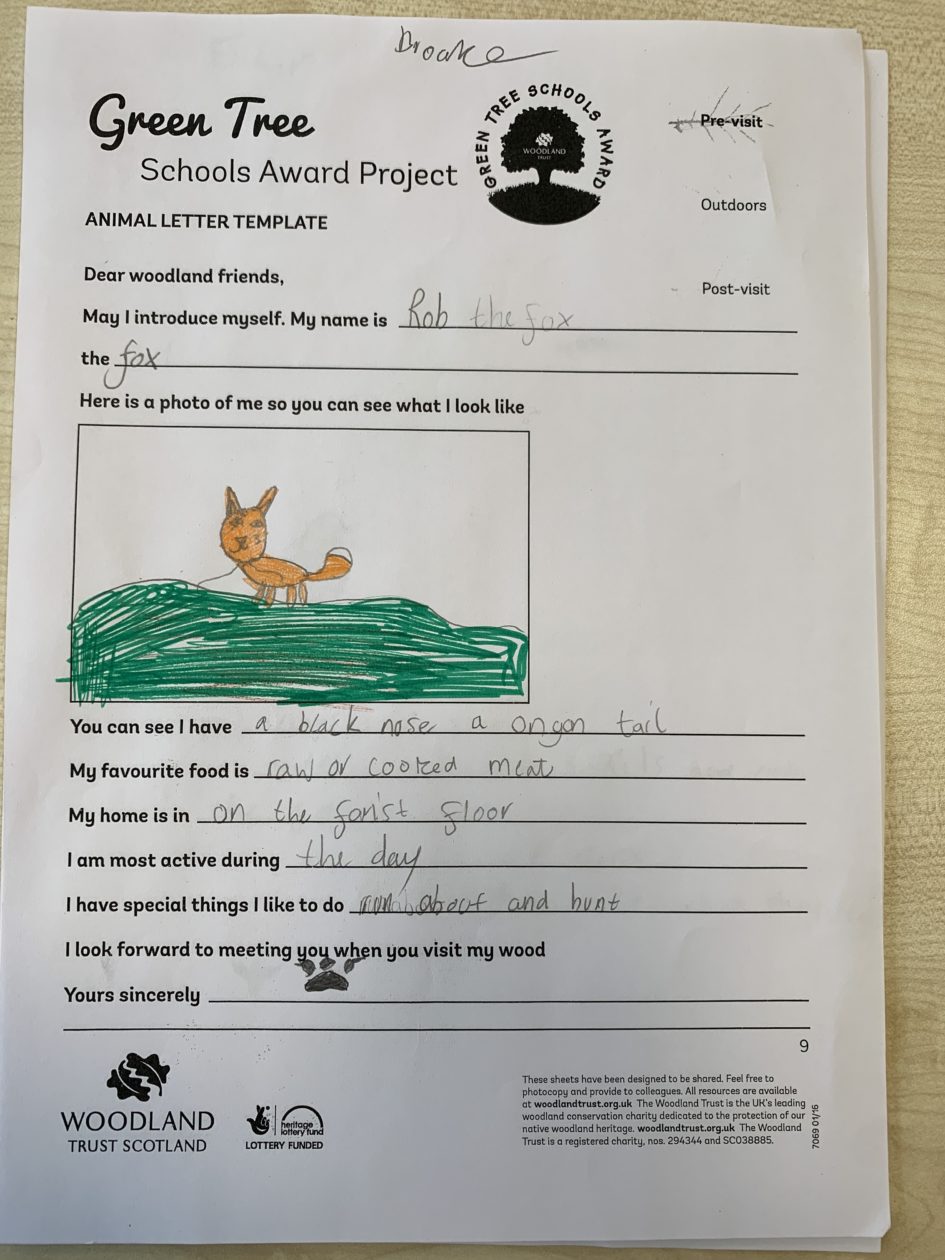 Brooke
Green Tree
Schools Award Project
GREEN TREE SCHOOLS AWARD
WOODLAND
TRUST
Pre-visit
Outdoors
Post-visit
ANIMAL LETTER TEMPLATE
Dear woodland friends,
May I introduce myself. My name is Rob the fox
the fox
Here is a photo of me so you can see what I look like
You can see I have a black nose a ongon tail
My favourite food is raw or cooked meat
My home is in on the forist floor
I am most active during the day
I have special things I like to do run about and hunt
I look forward to meeting you when you visit my wood
Yours sincerely
9
WOODLAND
TRUST SCOTLAND
heritage
lottery fund
LOTTERY FUNDED
These sheets have been designed to be shared. Feel free to
photocopy and provide to colleagues. All resources are available
at woodlandtrust.org.uk The Woodland Trust is the UK's leading
woodland conservation charity dedicated to the protection of our
native woodland heritage. woodlandtrust.org.uk The Woodland
Trust is a registered charity, nos. 294344 and SC038885.
7069 01/16